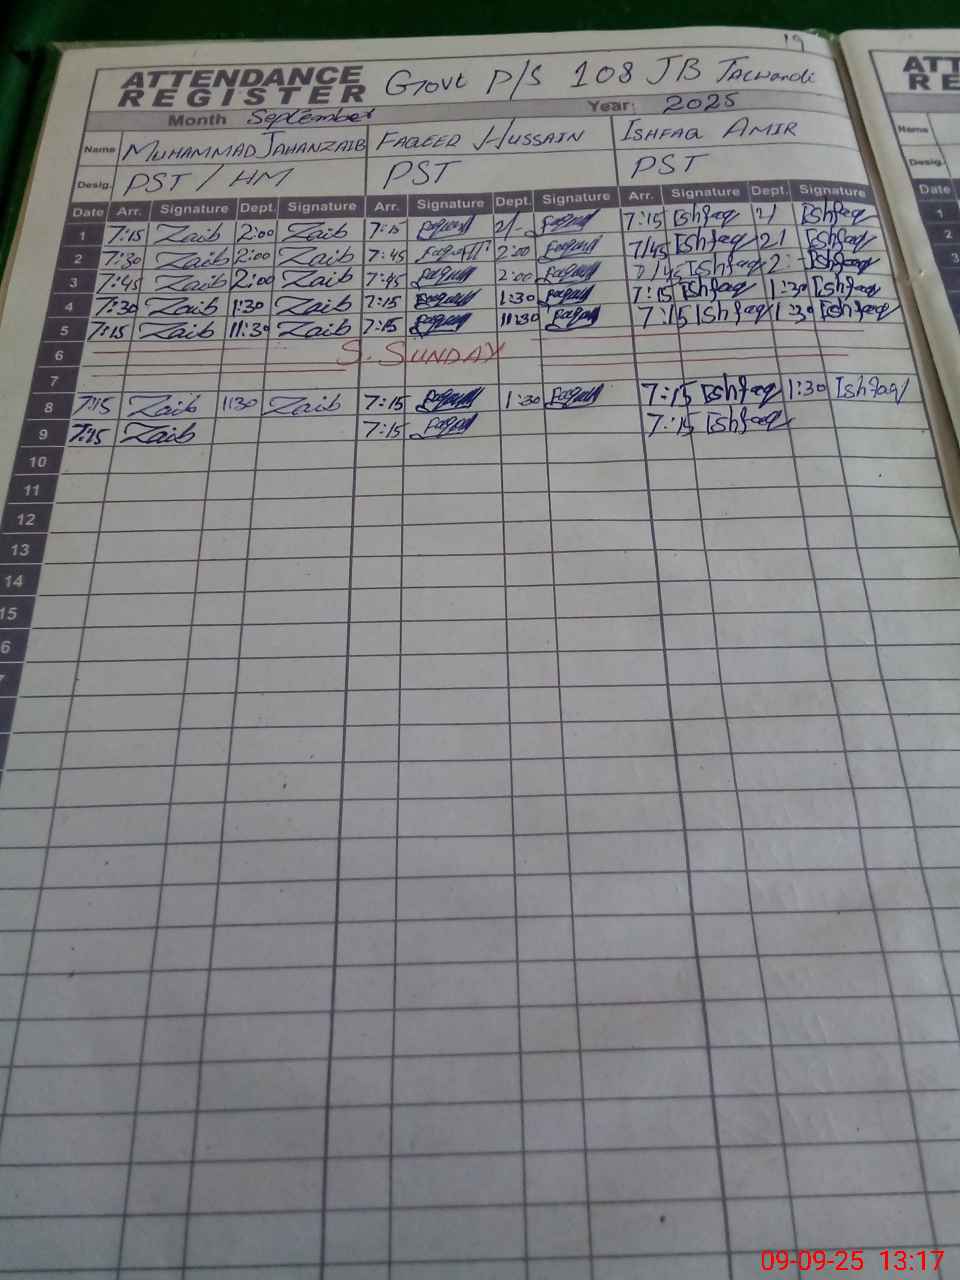 19
ATTENDANCE REGISTER Govt P/S 108 JB Talwandi
Month September Year: 2025
Name MUHAMMAD JAHANZAIB FAQEER HUSSAIN ISHFAQ AMIR
Desig. PST / HM PST PST
Date Arr. Signature Dept. Signature Arr. Signature Dept. Signature Arr. Signature Dept. Signature
1 7:15 Zaib 2:00 Zaib 7:15 2/- 7:15 Ishfaq 2/ Ishfaq
2 7:30 Zaib 2:00 Zaib 7:45 2:00 7/45 Ishfaq 2/ Ishfaq
3 7:45 Zaib 2:00 Zaib 7:45 2:00 7/45 Ishfaq 2: Ishfaq
4 7:30 Zaib 1:30 Zaib 7:15 1:30 7:15 Ishfaq 1:30 Ishfaq
5 7:15 Zaib 11:30 Zaib 7:15 11:30 7:15 Ishfaq Ishfaq
6 S. SUNDAY
7
8 7:15 Zaib 1:30 Zaib 7:15 1:30 7:15 Ishfaq 1:30 Ishfaq
9 7:15 Zaib 7:15 7:15 Ishfaq
10
11
12
13
14
15
6
7
ATT
RE
Name
Desig.
Date
1
2
3
09-09-25 13:17